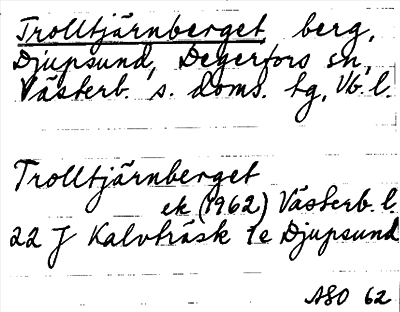 Trolltjärnberget berg,
Djupsund, Degerfors sn,
Västerb. s. doms. tg, Vb. l.
Trolltjärnberget
ek (1962) Västerb. l.
22 J Kalvträsk 1e Djupsund
ASO 62